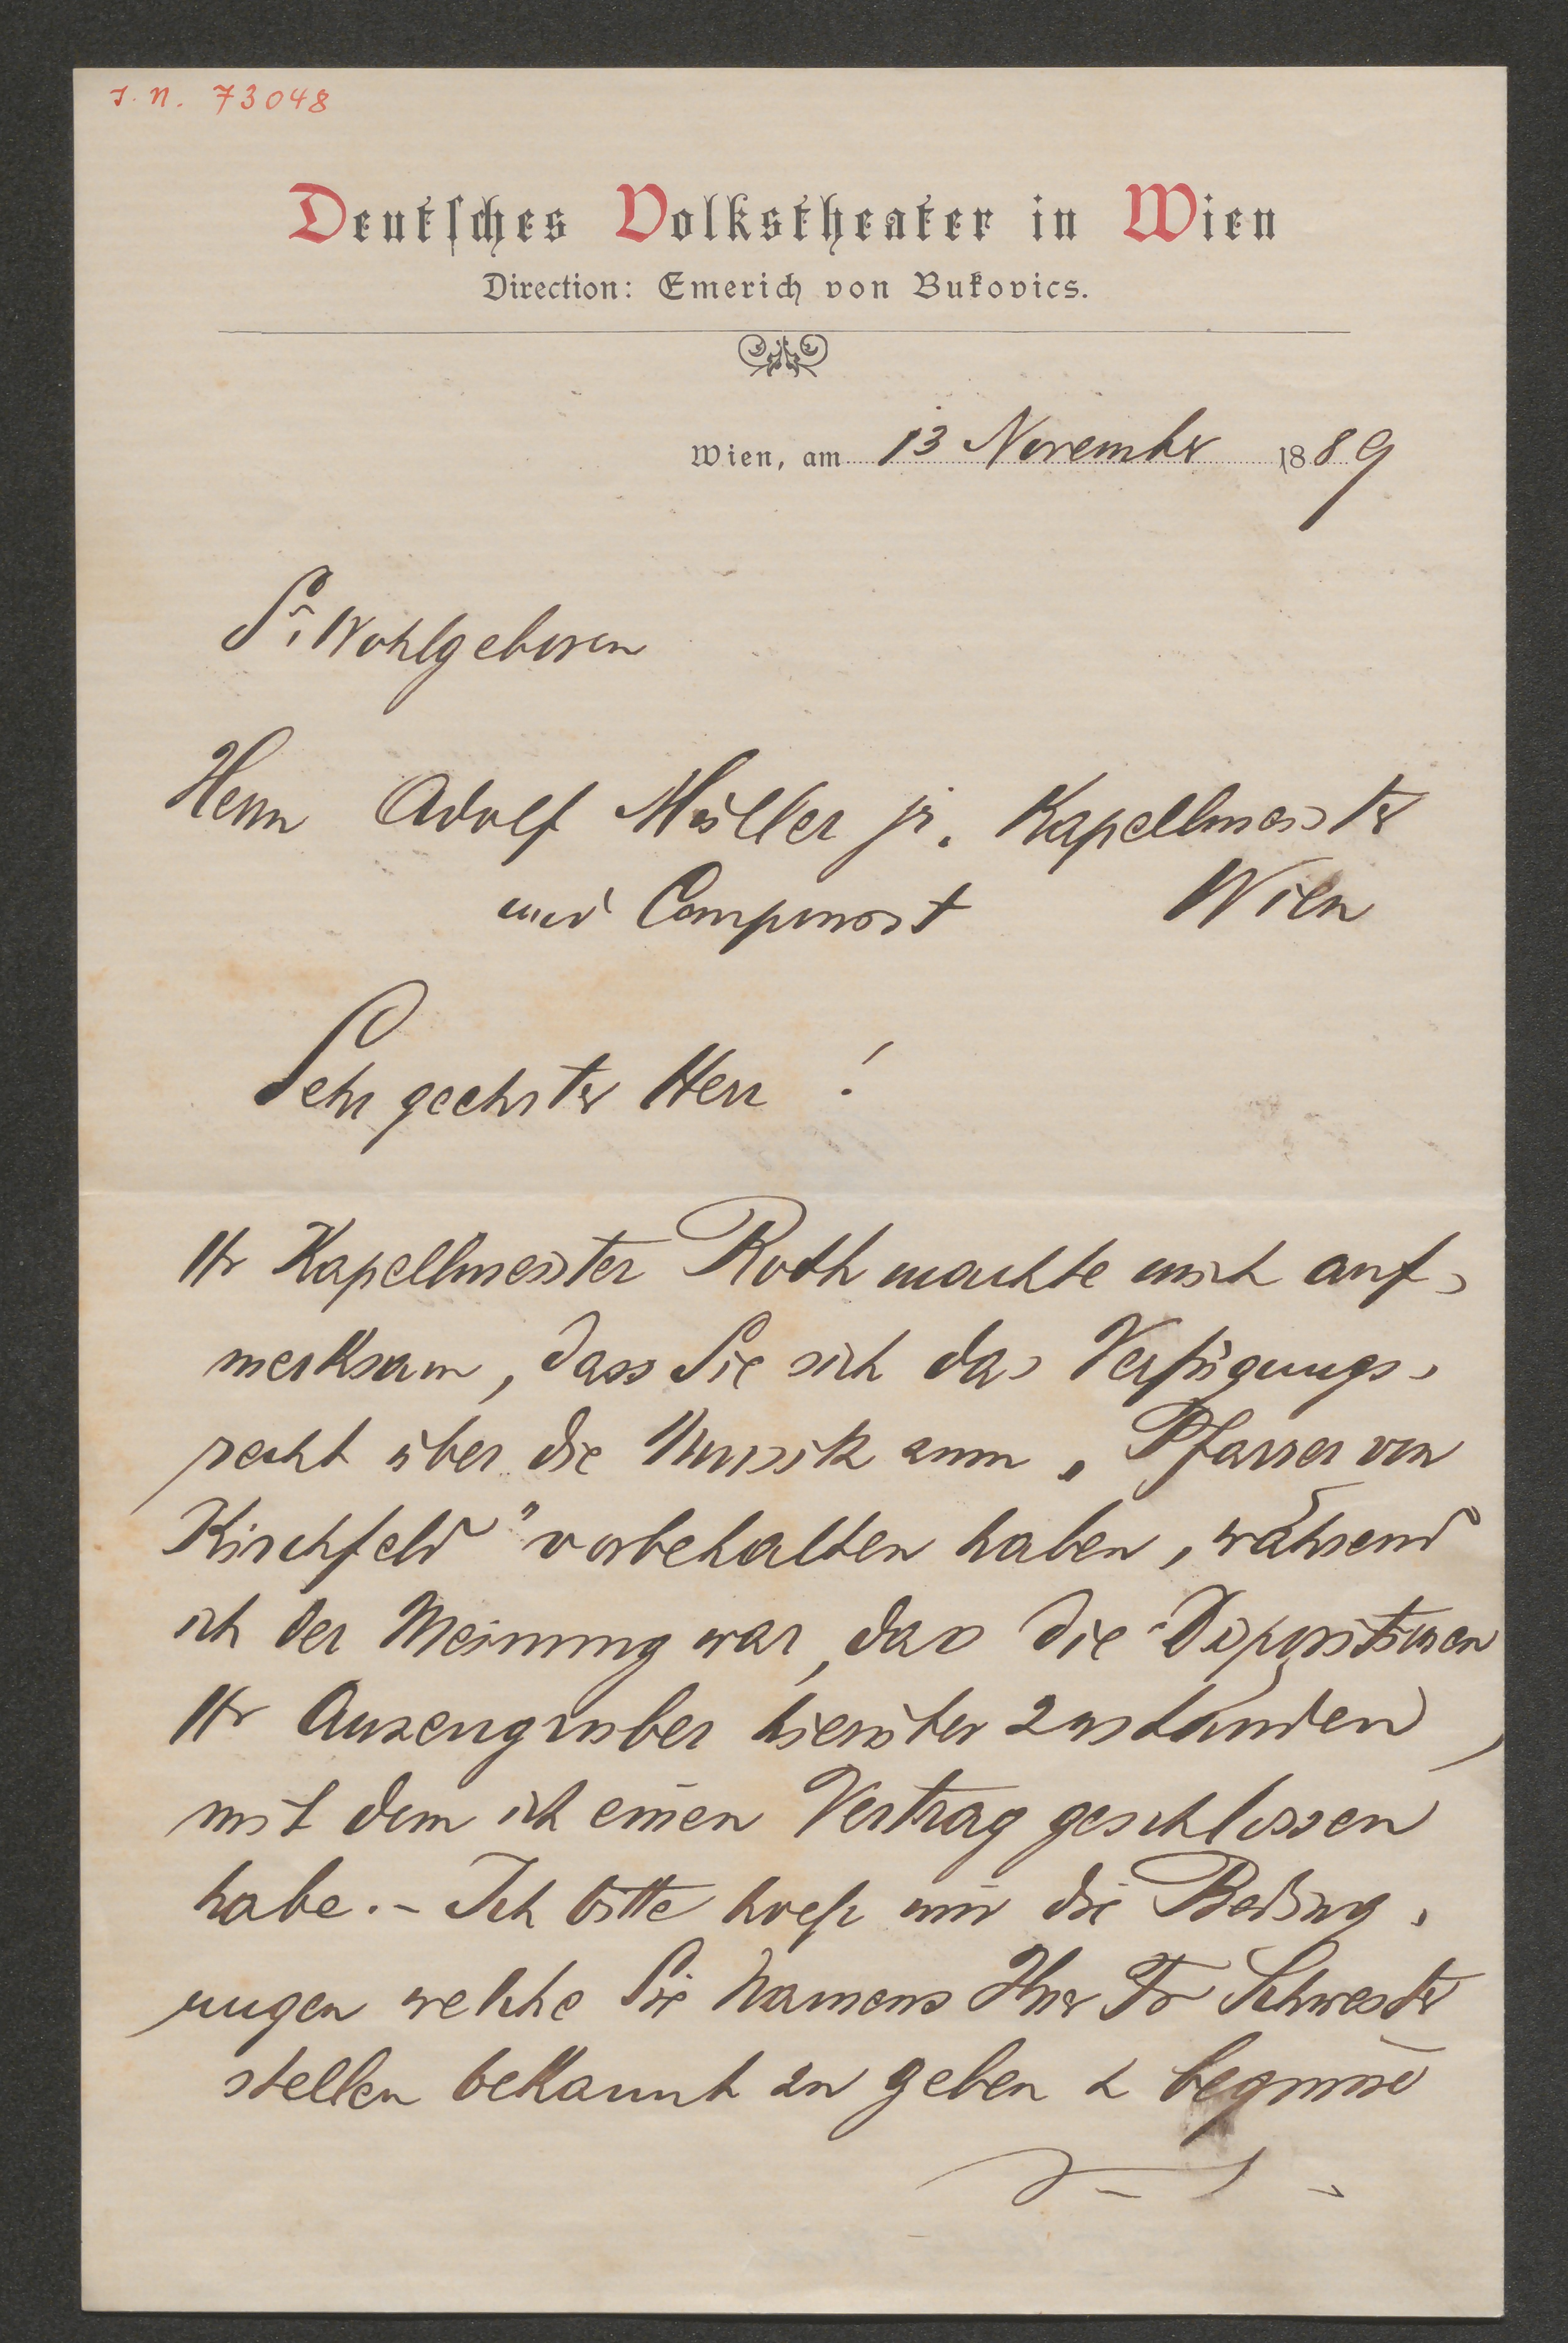 I. N. 73048
Deutsches Volkstheater in Wien
Direction: Emerich von Bukovics.
Wien, am 13 November 1889
Sr. Wohlgeboren
Herrn Adolf Müller jr. Kapellmeister
und Componist Wien
Sehr geehrter Herr!
Hr Kapellmeister Roth machte mich auf-
merksam, dass Sie sich das Verfügungs-
recht über die Musik zum „Pfarrer von
Kirchfeld" vorbehalten haben, während
ich der Meinung war, dass die Dispositionen
Hr Anzengruber hierüber zuständen,
mit dem ich einen Vertrag geschlossen
habe. - Ich bitte höfl mir die Beding-
ungen welche Sie Namens Ihrer Fr Schwester
stellen bekannt zu geben &